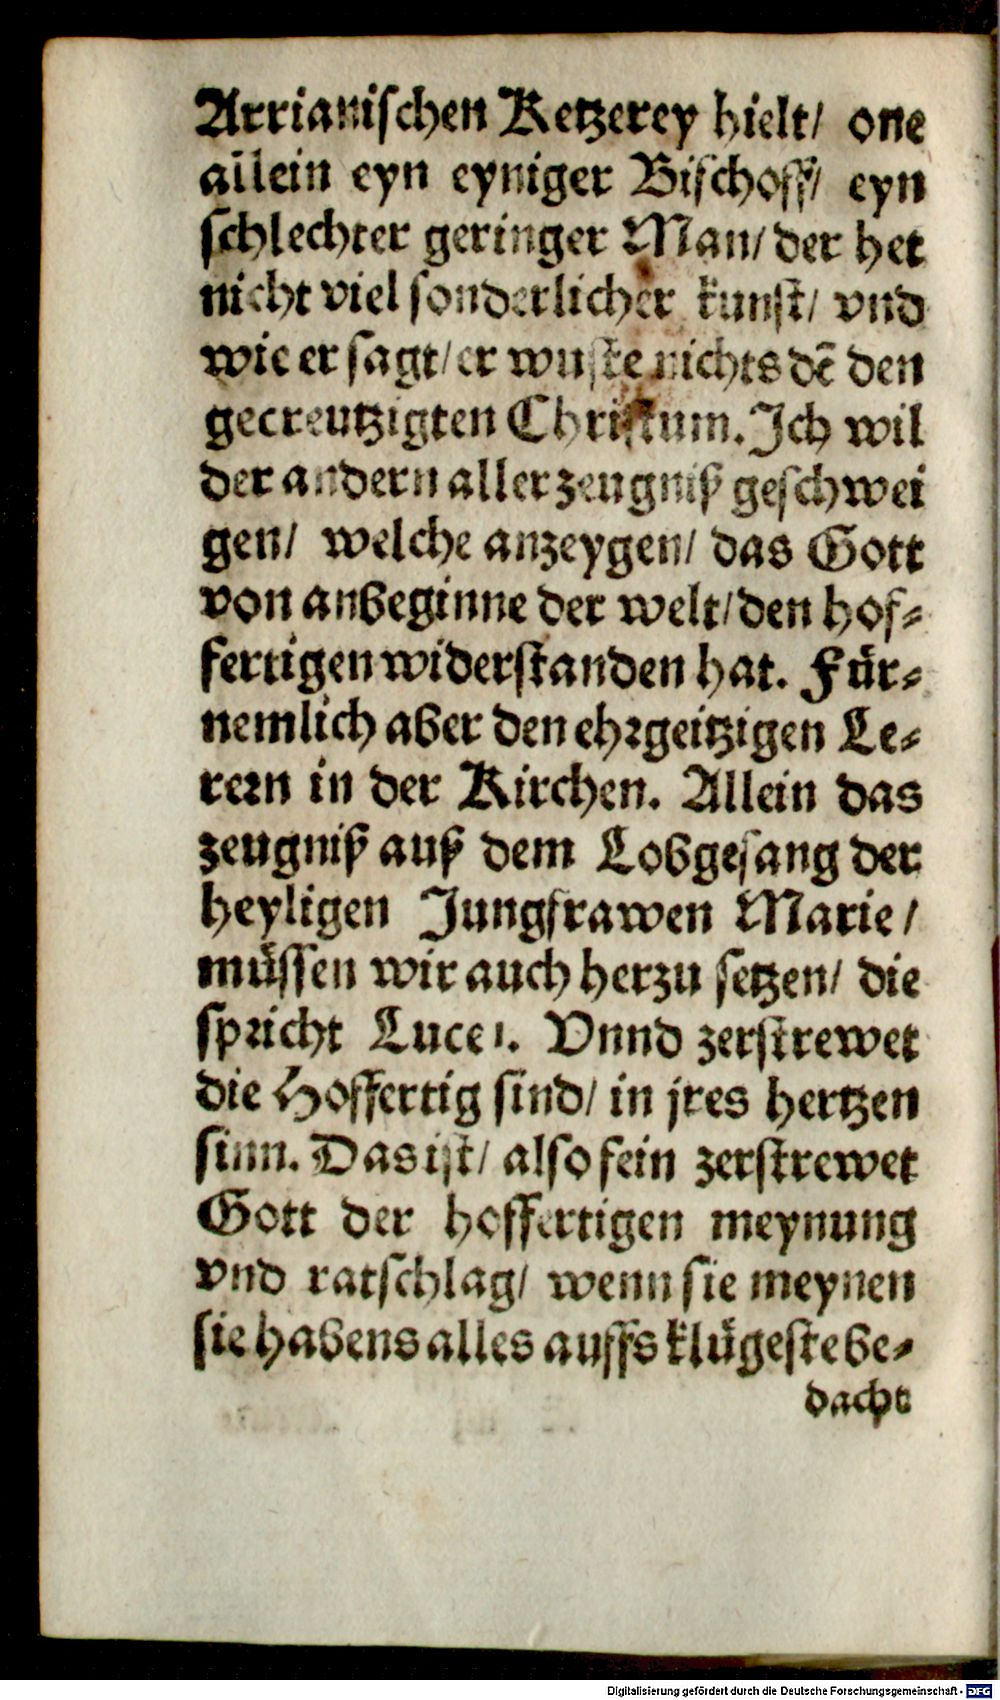 Arrianischen Ketzerey hielt/ one
allein eyn eyniger Bischoff/ eyn
schlechter geringer Man/ der het
nicht viel sonderlicher kunst/ vnd
wie er sagt/ er wuste nichts dē den
gecreutzigten Christum. Ich wil
der andern aller zeugniß geschwei
gen/ welche anzeygen/ das Gott
von anbeginne der welt/ den hof-
fertigen widerstanden hat. Für-
nemlich aber den ehrgeitzigen Le-
rern in der Kirchen. Allein das
zeugniß auß dem Lobgesang der
heyligen Jungfrawen Marie/
müssen wir auch herzu setzen/ die
spricht Luce 1. Vnnd zerstrewet
die Hoffertig sind/ in jres hertzen
sinn. Das ist/ also fein zerstrewet
Gott der hoffertigen meynung
vnd ratschlag/ wenn sie meynen
sie habens alles auffs klügeste be-
dacht
Digitalisierung gefördert durch die Deutsche Forschungsgemeinschaft - DFG